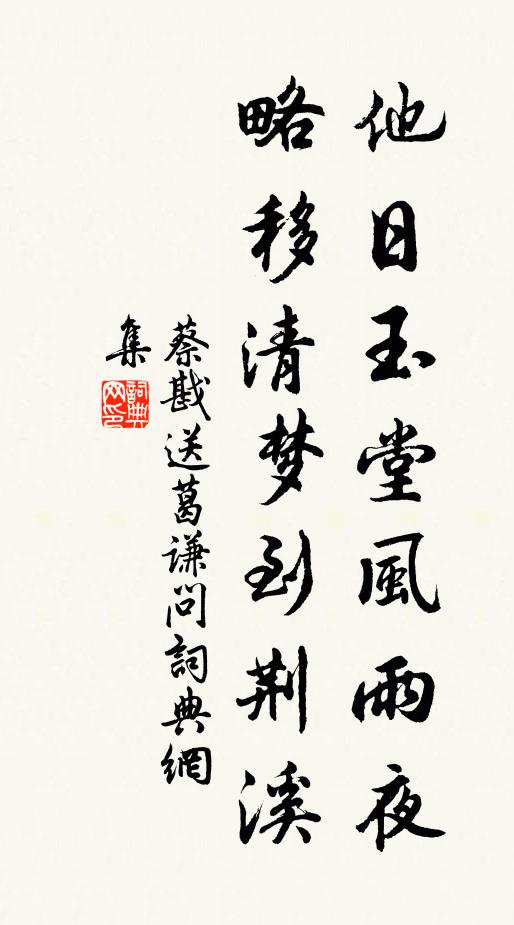 他日玉堂風雨夜
略移清梦到荆溪
蔡戡送葛谦問詞典網
集
詞典
网印